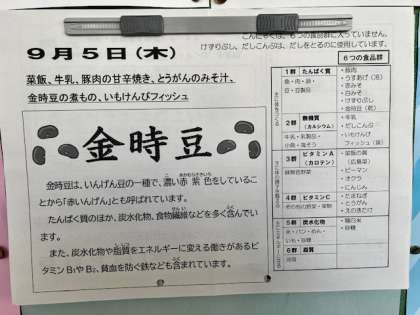 こんにゃくは、6つの食品群に入っていません。
けずりぶし、だしこんぶは、だしをとるのに使用しています。
9月5日(木)
菜飯、牛乳、豚肉の甘辛焼き、とうがんのみそ汁、
金時豆の煮もの、いもけんぴフィッシュ
金時豆
金時豆は、いんげん豆の一種で、濃い赤紫色をしているこ
とから「赤いんげん」とも呼ばれています。
たんぱく質のほか、炭水化物、食物繊維などを多く含んでい
ます。
また、炭水化物や脂質をエネルギーに変える働きがあるビ
タミンB₁やB₂、貧血を防ぐ鉄なども含まれています。
6つの食品群
1群 たんぱく質
魚・肉・卵・
豆・豆製品
豚肉
うすあげ(冷)
赤みそ
白みそ
けずりぶし
金時豆(乾)
2群 無機質
(カルシウム)
牛乳・乳製品・
小魚・海そう
牛乳
だしこんぶ
いもけんぴ
フィッシュ(袋)
3群 ビタミンA
(カロテン)
緑黄色野菜
菜飯の素
(広島菜)
ピーマン
オクラ
にんじん
4群 ビタミンC
その他の野菜・果物
たまねぎ
とうがん
えのきたけ
5群 炭水化物
米・パン・めん・
いも・砂糖
精白米
砂糖
6群 脂質
油脂